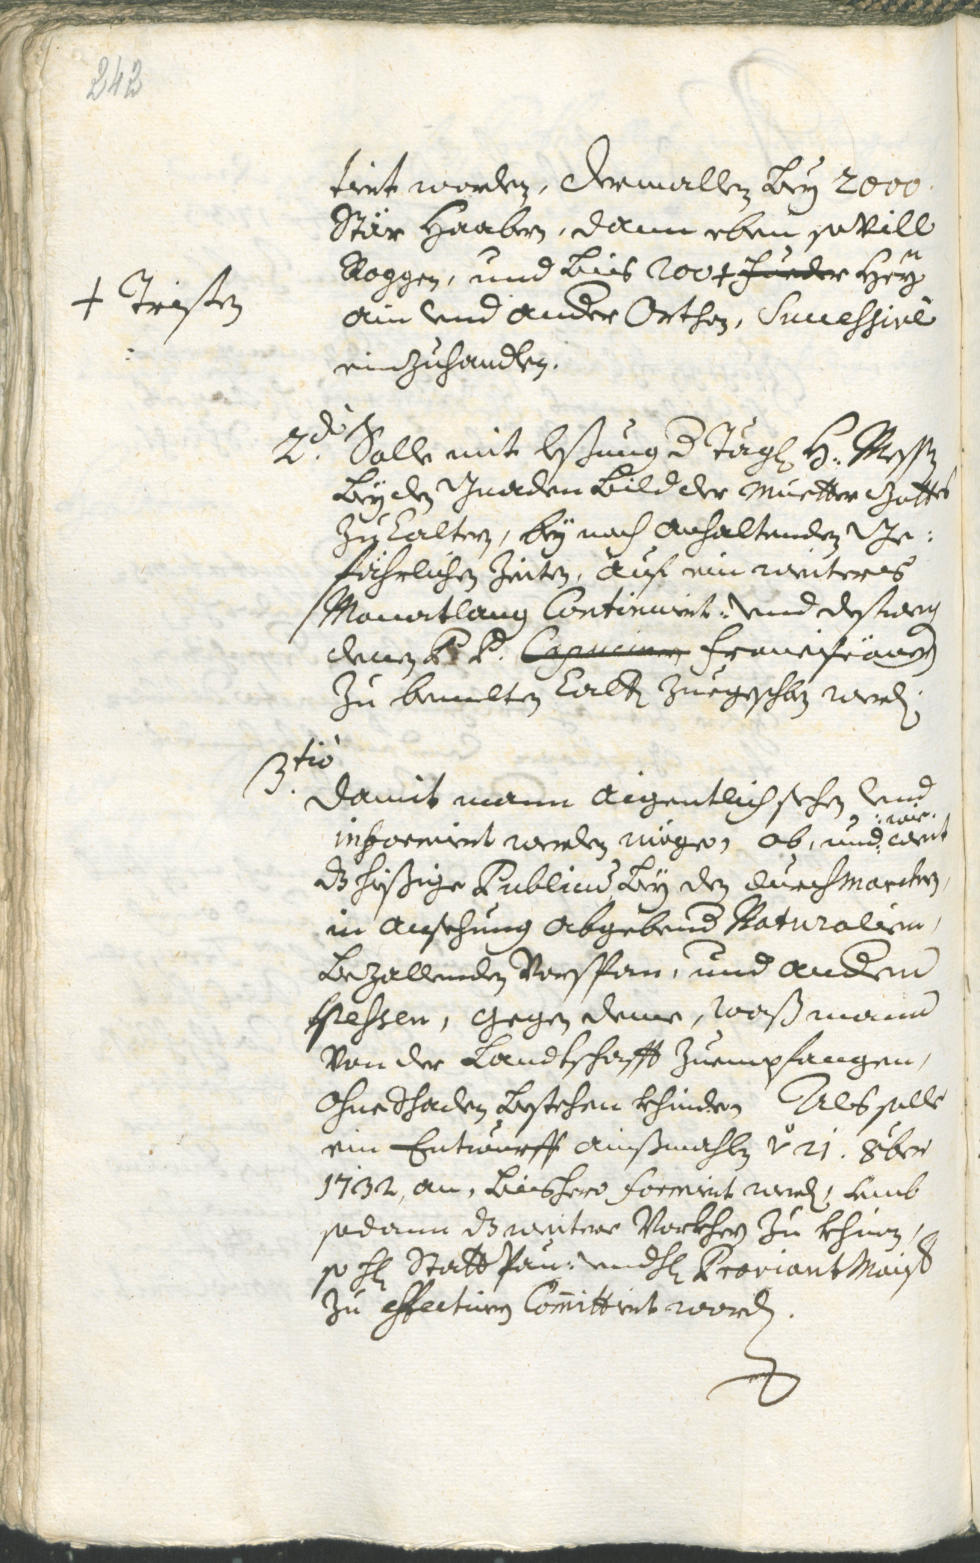 242
tirt worden, dermallen bey 2000.
Stär Haabern, dann eben sovill
Roggen, und bis 200 + Fueder Heÿ
+ Tristen
ain und ander Orthen, Successivè
einzuhandlen.
2.do Solle mit lesung d Tägl: H: Messen
beÿ den Gnaden Bild der Muetter Gottes
zu Caltern, beÿ noch anhaltenden Ge:
fährlichen Zeiten, auf ein weiteres
Monatlang Continuirt: und
denen P P. Capuciner Franciscanern
zu bemelten Calt: zuegeschriben werd:
3.tiò
Damit mann aigentlich sehen, und
informirt werden möge, ob, und: wie: weit
ds hießige Publicum beÿ den durchmarchen,
in ansehung abgebend Naturalien,
bezallenden Vorspan, und andern
Spessen, gegen deme, waß mann
von der Landtschafft zuempfangen,
ohne Schaden bestehen khinden Als solle
ein Entwurff ainßmahls v 21. 8ber
1732, an, bishero formirt werd:, umb
sodann ds weitere Vorkhern zu khinen,
so H: Statt Pau: und H: Proviant Maister
zu effectuirn Committirt word:.